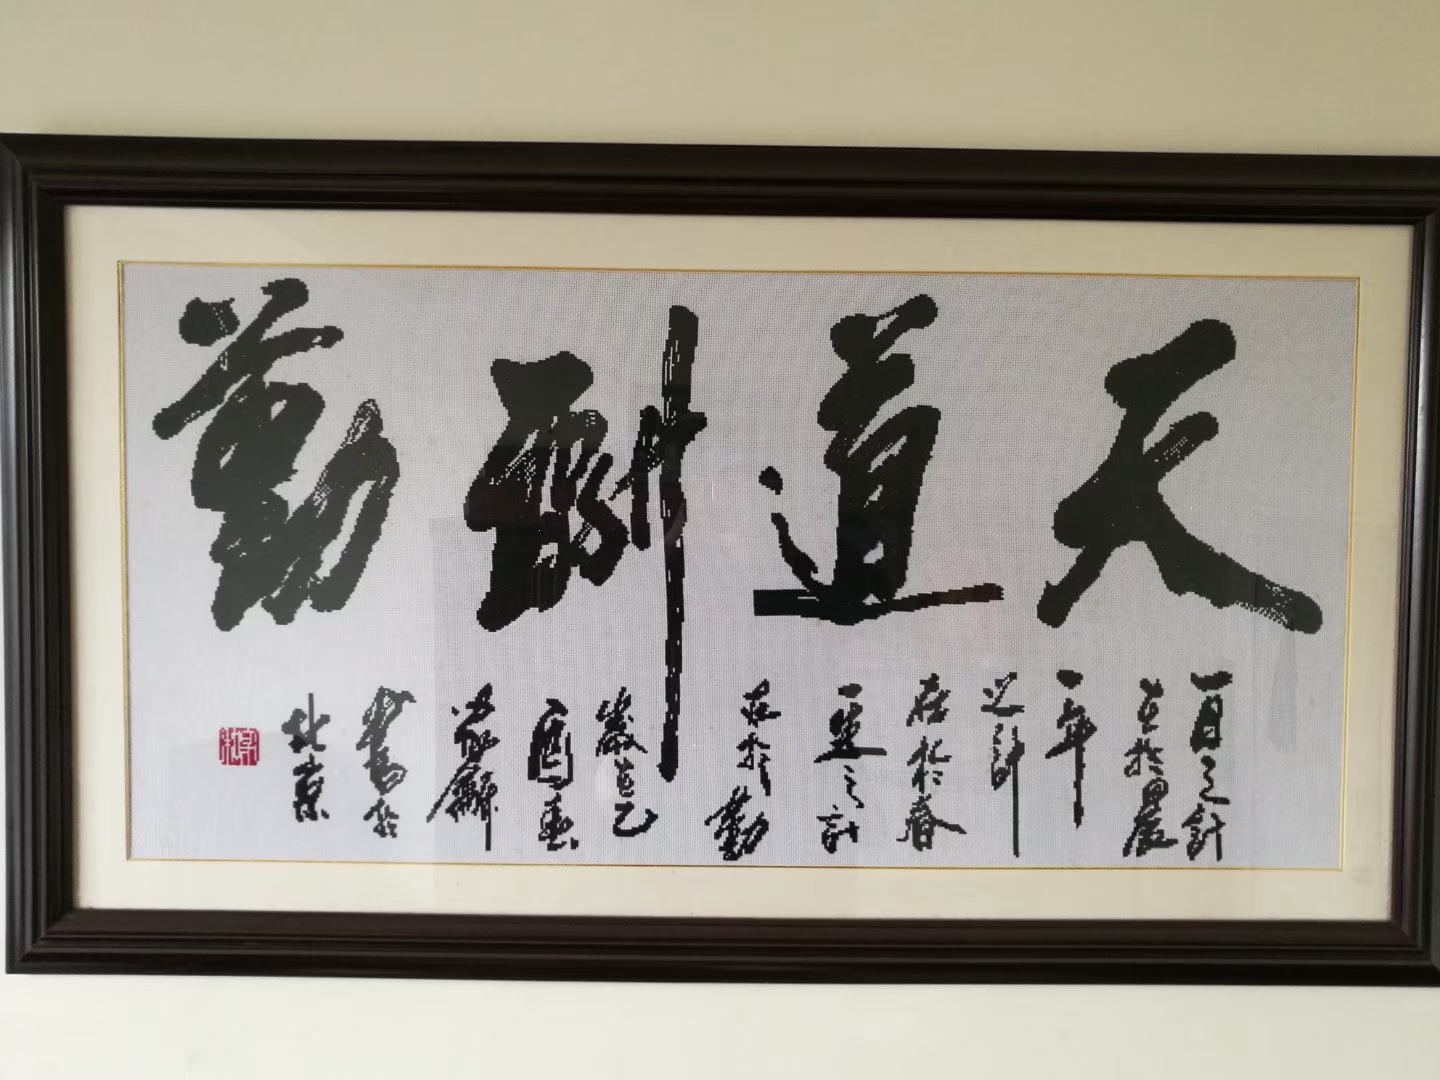 天道酬勤
一日之計
在於晨
一年
之計
在於春
一生之計
在於勤
歲在乙
書於
北京